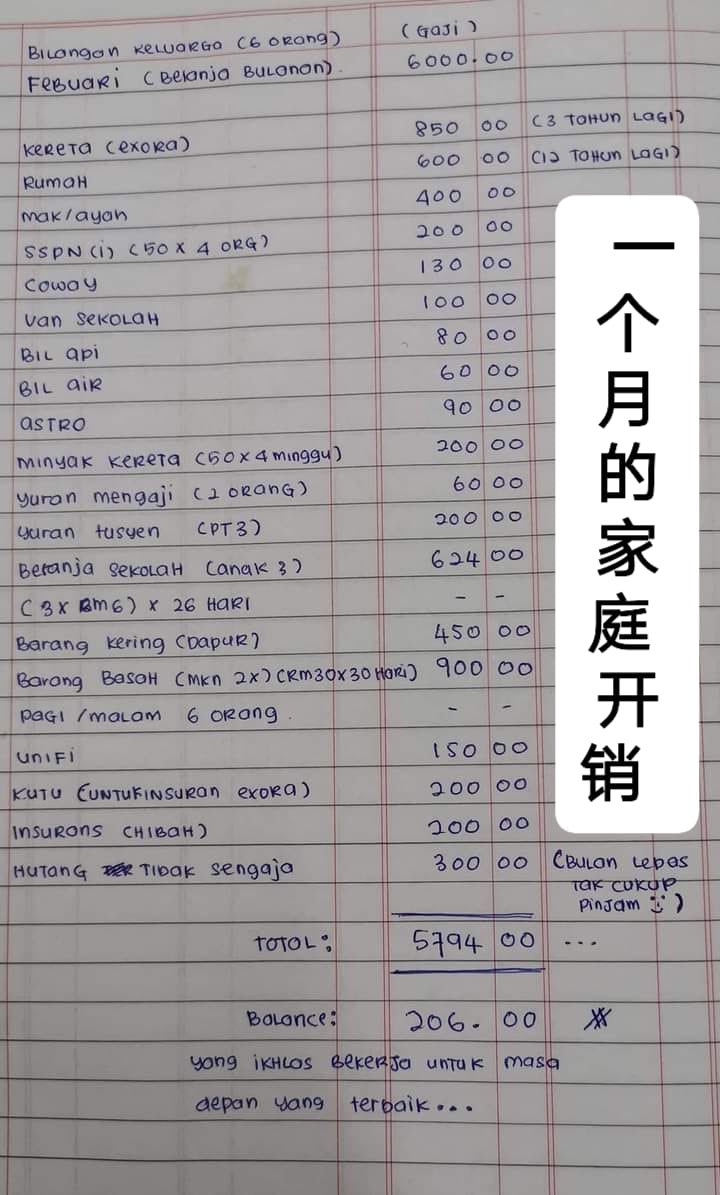 Bilangan keluarga (6 orang) (Gaji)
Febuari (Belanja Bulanan). 6000.00
Kereta (exora) 850 00 (3 Tahun Lagi)
Rumah 600 00 (12 Tahun Lagi)
mak/ayah 400 00
SSPN (i) (50 x 4 org) 200 00
Coway 130 00
Van Sekolah 100 00
Bil api 80 00
Bil air 60 00
astro 90 00
minyak kereta (50 x 4 minggu) 200 00
yuran mengaji (2 orang) 60 00
yuran tusyen (PT3) 200 00
Belanja Sekolah (anak 3) 624 00
(3 x RM6) x 26 Hari - -
Barang kering (Dapur) 450 00
Barang Basah (mkn 2x) (RM30x30 Hari) 900 00
pagi /malam 6 orang. - -
unifi 150 00
Kutu (untuk insuran exora) 200 00
Insurans (Hibah) 200 00
Hutang Tidak sengaja 300 00 (Bulan Lepas
Tak cukup
pinjam :))
Total: 5794 00 ...
Balance: 206. 00
yang ikhlas Bekerja untuk masa
depan yang terbaik...
一个月的家庭开销